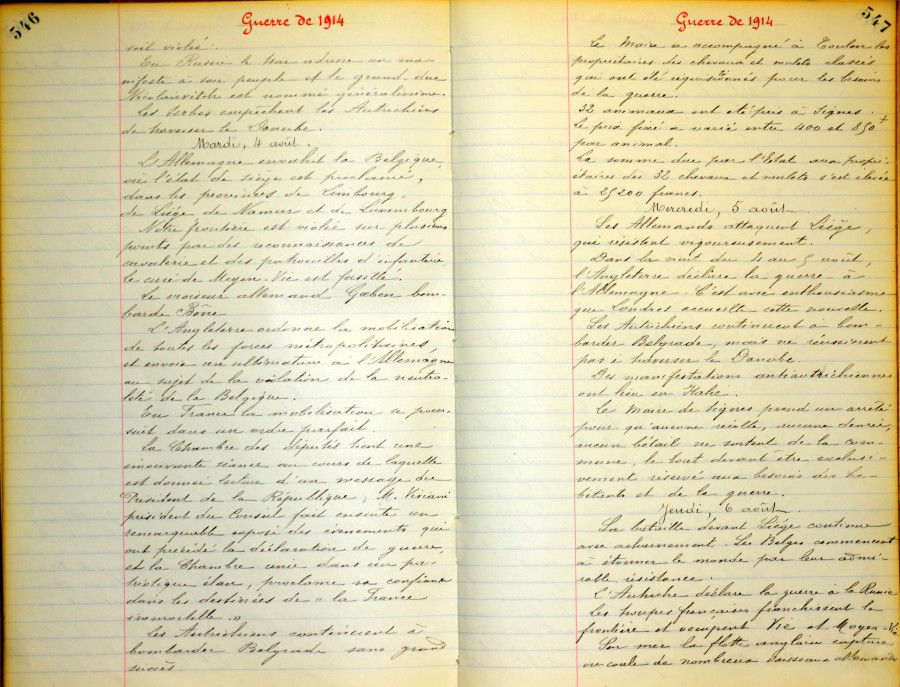 546
Guerre de 1914
soit violé.
En Russie le tsar adresse un ma-
nifeste à son peuple et le grand duc
Nicolaïevitch est nommé généralissime.
Les Serbes empêchent les Autrichiens
de traverser le Danube.
Mardi, 4 août.
L'Allemagne envahit la Belgique,
où l'état de siège est proclamé,
dans les provinces de Limbourg,
de Liège, de Namur et de Luxembourg
Notre frontière est violée sur plusieurs
points par des reconnaissances de
cavalerie et des patrouilles d'infanterie
Le curé de Moyen-Vic est fusillé.
Le croiseur allemand Gœben bom-
barde Bône
L'Angleterre ordonne la mobilisation
de toutes les forces métropolitaines,
et envoie un ultimatum à l'Allemagne
au sujet de la violation de la neutra-
lité de la Belgique.
En France la mobilisation se pour-
suit dans un ordre parfait.
La Chambre des députés tient une
émouvante séance au cours de laquelle
est donnée lecture d'un message du
Président de la République; M. Viviani
président du Conseil fait ensuite un
remarquable exposé des événements qui
ont précédé la déclaration de guerre,
et la Chambre unie dans un pa-
triotique élan, proclame sa confiance
dans les destinées de « la France
immortelle. »
Les Autrichiens continuent à
bombarder Belgrade sans grand
succès.
547
Guerre de 1914
Le Maire a accompagné à Toulon les
propriétaires des chevaux et mulets classés
qui ont été réquisitionnés pour les besoins
de la guerre.
32 animaux ont été pris à Signes.
Le prix fixé a varié entre 400 et 850 f
par animal.
La somme due par l'Etat aux proprié-
étaires des 32 chevaux et mulets s'est élevée
à 25200 francs.
Mercredi, 5 août
Les Allemands attaquent Liège,
qui résistent vigoureusement.
Dans la nuit du 4 au 5 août,
l'Angleterre déclare la guerre à
l'Allemagne. C'est avec enthousiasme
que Londres accueille cette nouvelle.
Les Autrichiens continuent à bom-
barder Belgrade, mais ne réussissent
pas à traverser le Danube
Des manifestations antiautrichiennes
ont lieu en Italie.
Le Maire de Signes prend un arrêté
pour qu'aucune récolte, aucune denrée,
aucun bétail ne sortent de la com-
mune, le tout devant être exclusi-
vement réservé aux besoins des ha-
bitants et de la guerre.
Jeudi, 6 août
La bataille devant Liège continue
avec acharnement. Les Belges commencent
à étonner le monde par leur admi-
rable résistance.
L'Autriche déclare la guerre à la Russie
Les troupes françaises franchissent la
frontière et occupent Vic et Moyen-Vic
Sur mer la flotte anglaise capture
ou coule de nombreux vaisseaux allemands